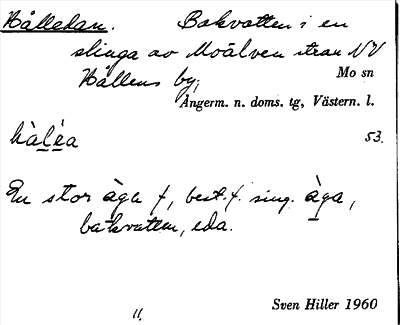 Hålledan. Bakvatten i en
slinga av Moälven utan NV
Hållens by, Mo sn
Ångerm. n. doms. tg, Västern. l.
53.
En stor åga f, best. f. sing. åga,
bakvatten, eda.
11.
Sven Hiller 1960